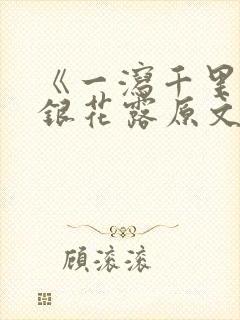 《一泻千里
银花露原文
顾滚滚